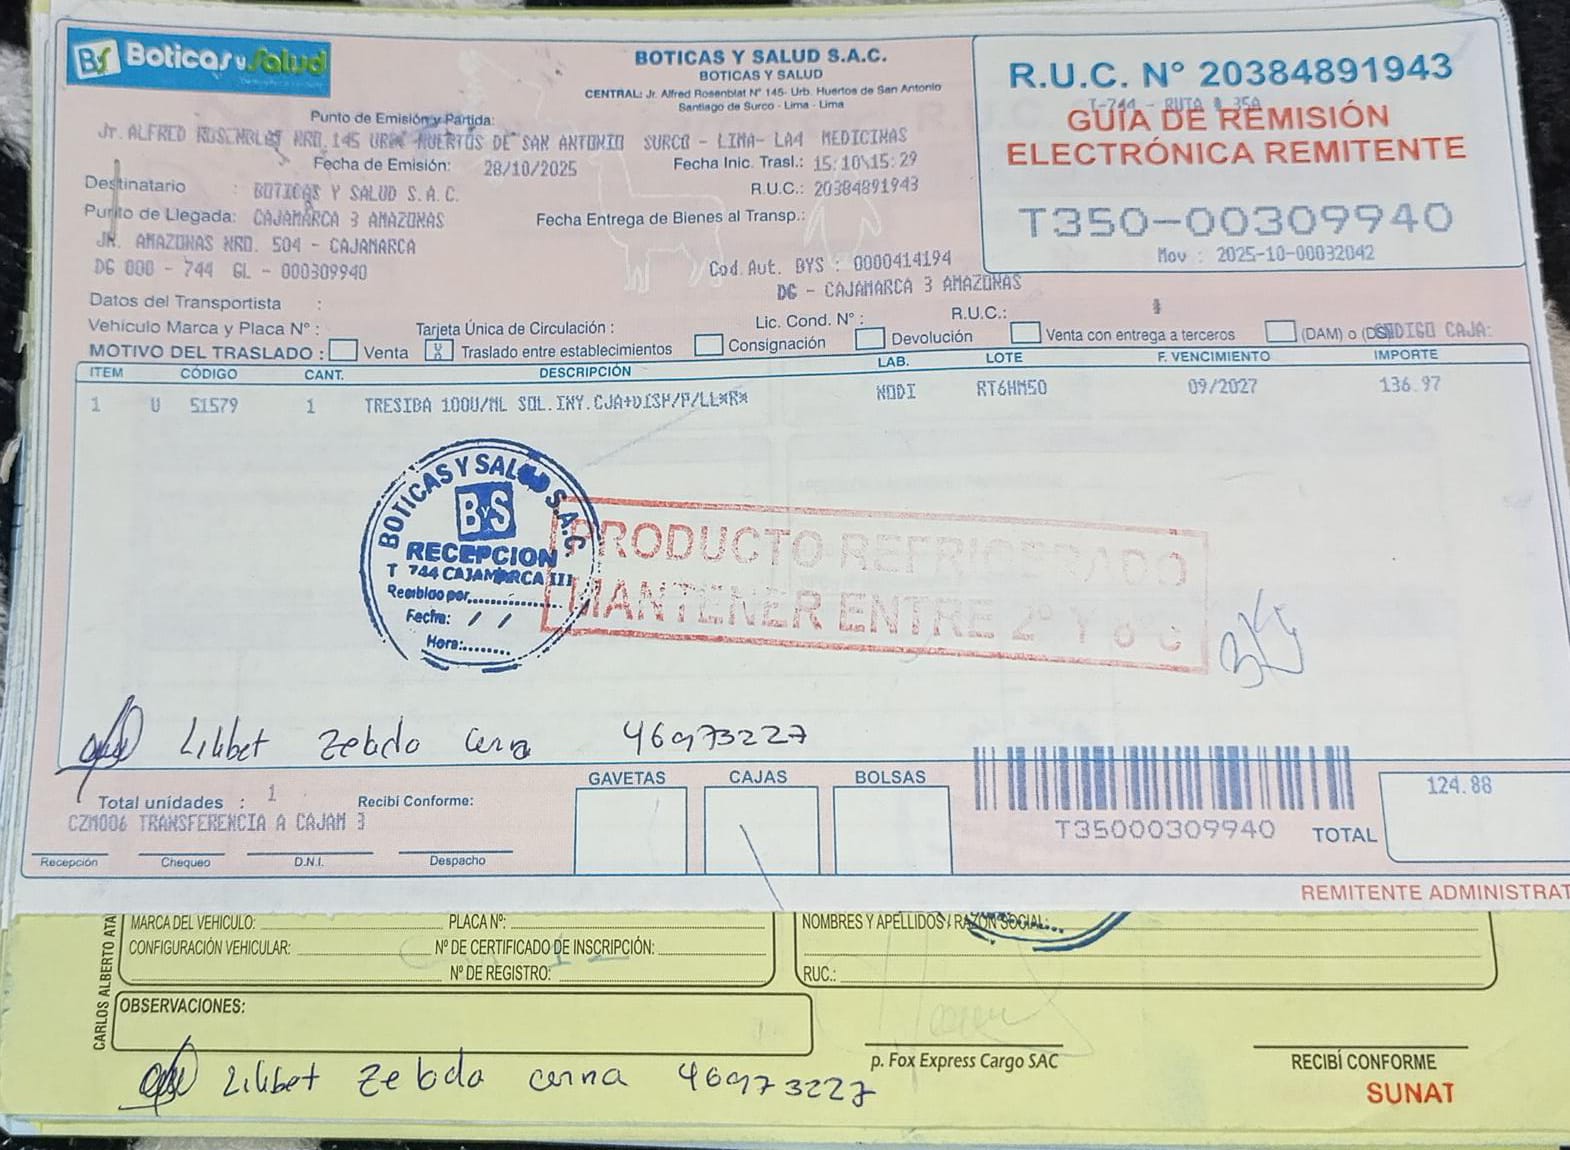 BS Boticas y Salud
BOTICAS Y SALUD S.A.C.
BOTICAS Y SALUD
CENTRAL: Jr. Alfred Rosenblat N° 145- Urb. Huertos de San Antonio
Santiago de Surco - Lima - Lima
R.U.C. N° 20384891943
T-744 - RUTA
GUÍA DE REMISIÓN
ELECTRÓNICA REMITENTE
T350-00309940
Mov : 2025-10-00032042
Punto de Emisión y Partida:
Jr. ALFRED ROSENBLAT NRO 145 URB HUERTOS DE SAN ANTONIO SURCO - LIMA- LA4 MEDICINAS
Fecha de Emisión: 28/10/2025 Fecha Inic. Trasl.: 15:10\15:29
Destinatario : BOTICAS Y SALUD S.A.C. R.U.C.: 20384891943
Punto de Llegada: CAJAMARCA 3 AMAZONAS Fecha Entrega de Bienes al Transp.:
JR. AMAZONAS NRO. 504 - CAJAMARCA
DG 000 - 744 GL - 000309940 Cod. Aut. BYS : 0000414194
DG - CAJAMARCA 3 AMAZONAS
Datos del Transportista :
Vehículo Marca y Placa N° : Tarjeta Única de Circulación : Lic. Cond. N° : R.U.C.:
MOTIVO DEL TRASLADO : Venta X Traslado entre establecimientos Consignación Devolución Venta con entrega a terceros (DAM) o CODIGO CAJA:
ITEM CÓDIGO CANT. DESCRIPCIÓN LAB. LOTE F. VENCIMIENTO IMPORTE
1 U 51579 1 TRESIBA 100U/ML SOL.INY.CJA+DISP/P/LL*R* NODI RT6HM50 09/2027 136.97
BOTICAS Y SALUD S.A.C.
ByS
RECEPCION
T 744 CAJAMARCA III
Recibido por
Fecha: / /
Hora:
PRODUCTO REFRIGERADO
MANTENER ENTRE 2° Y 8° C
Lilibet Zelada Cerna 46973227
GAVETAS CAJAS BOLSAS
124.88
Total unidades : 1 Recibí Conforme:
CZM006 TRANSFERENCIA A CAJAM 3
T35000309940 TOTAL
Recepción Chequeo D.N.I. Despacho
REMITENTE ADMINISTRAT
CARLOS ALBERTO ATA
MARCA DEL VEHICULO: PLACA Nº: NOMBRES Y APELLIDOS / RAZÓN SOCIAL:
CONFIGURACIÓN VEHICULAR: Nº DE CERTIFICADO DE INSCRIPCIÓN:
Nº DE REGISTRO: RUC.:
OBSERVACIONES:
p. Fox Express Cargo SAC RECIBÍ CONFORME
SUNAT
Lilibet Zelada cerna 46973227